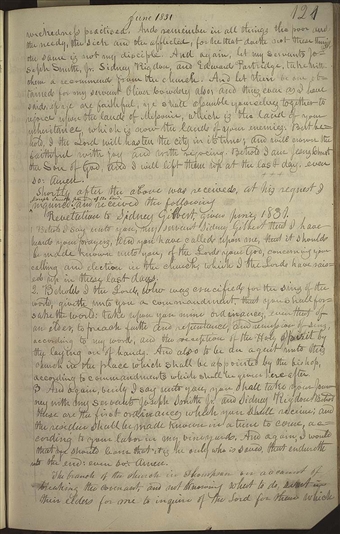 june 1831
124
wickedness practised. And remember in all things the poor and
the needy, the sick and the afflicted, for he that doeth not these things
the same is not my disciple. And again, let my servants Jo-
seph Smith, Jr. Sidney Rigdon, and Edward Partridge, take with
them a recommend from the church. And let there be one ob-
tained for my servant Oliver Cowdery also: and thus even as I have
said, if ye are faithful, ye shall assemble yourselves together to
rejoice upon the land of Missouri, which is the land of your
inheritance, which is now the land of your enemies. But be-
hold, I the Lord will hasten the city in its time; and will crown the
faithful with joy and with rejoicing. Behold I am Jesus Christ
the Son of God, and I will lift them up at the last day: even
so: Amen.
Shortly after the above was received, at his request I
inquired and received the following
Revelation to Sidney Gilbert given june, 1831.
1 Behold I say unto you, my servant Sidney Gilbert that I have
heard your prayers, & you have called upon me, that it should
be made known unto you, of the Lord your God, concerning your
calling and election in the church, which I the Lord have rais-
ed up in these last days.
2 Behold I the Lord, who was crucified for the sins of the
world, giveth unto you a commandment, that you shall for-
sake the world. take upon you mine ordinances, even that of
an elder, to preach faith and repentance, and remission of sins,
according to my word, and the reception of the Holy Spirit by
the laying on of hands. And also to be an agent unto this
church in the place which shall be appointed by the bishop,
according to commandments which shall be given hereafter.
3 And again, verily I say unto you, you shall take your jour-
ney with my servants Joseph Smith Jr. and Sidney Rigdon. Behold
these are the first ordinances which you shall receive: and
the residue shall be made known in a time to come, ac-
cording to your labor in my vineyard. And again, I would
that ye should learn that it is he only who is saved, that endureth
unto the end: even so: Amen.
The branch of the church in Thompson on account of
breaking the covenant, and not knowing what to do,
their elders for me to inquire of the Lord for them which